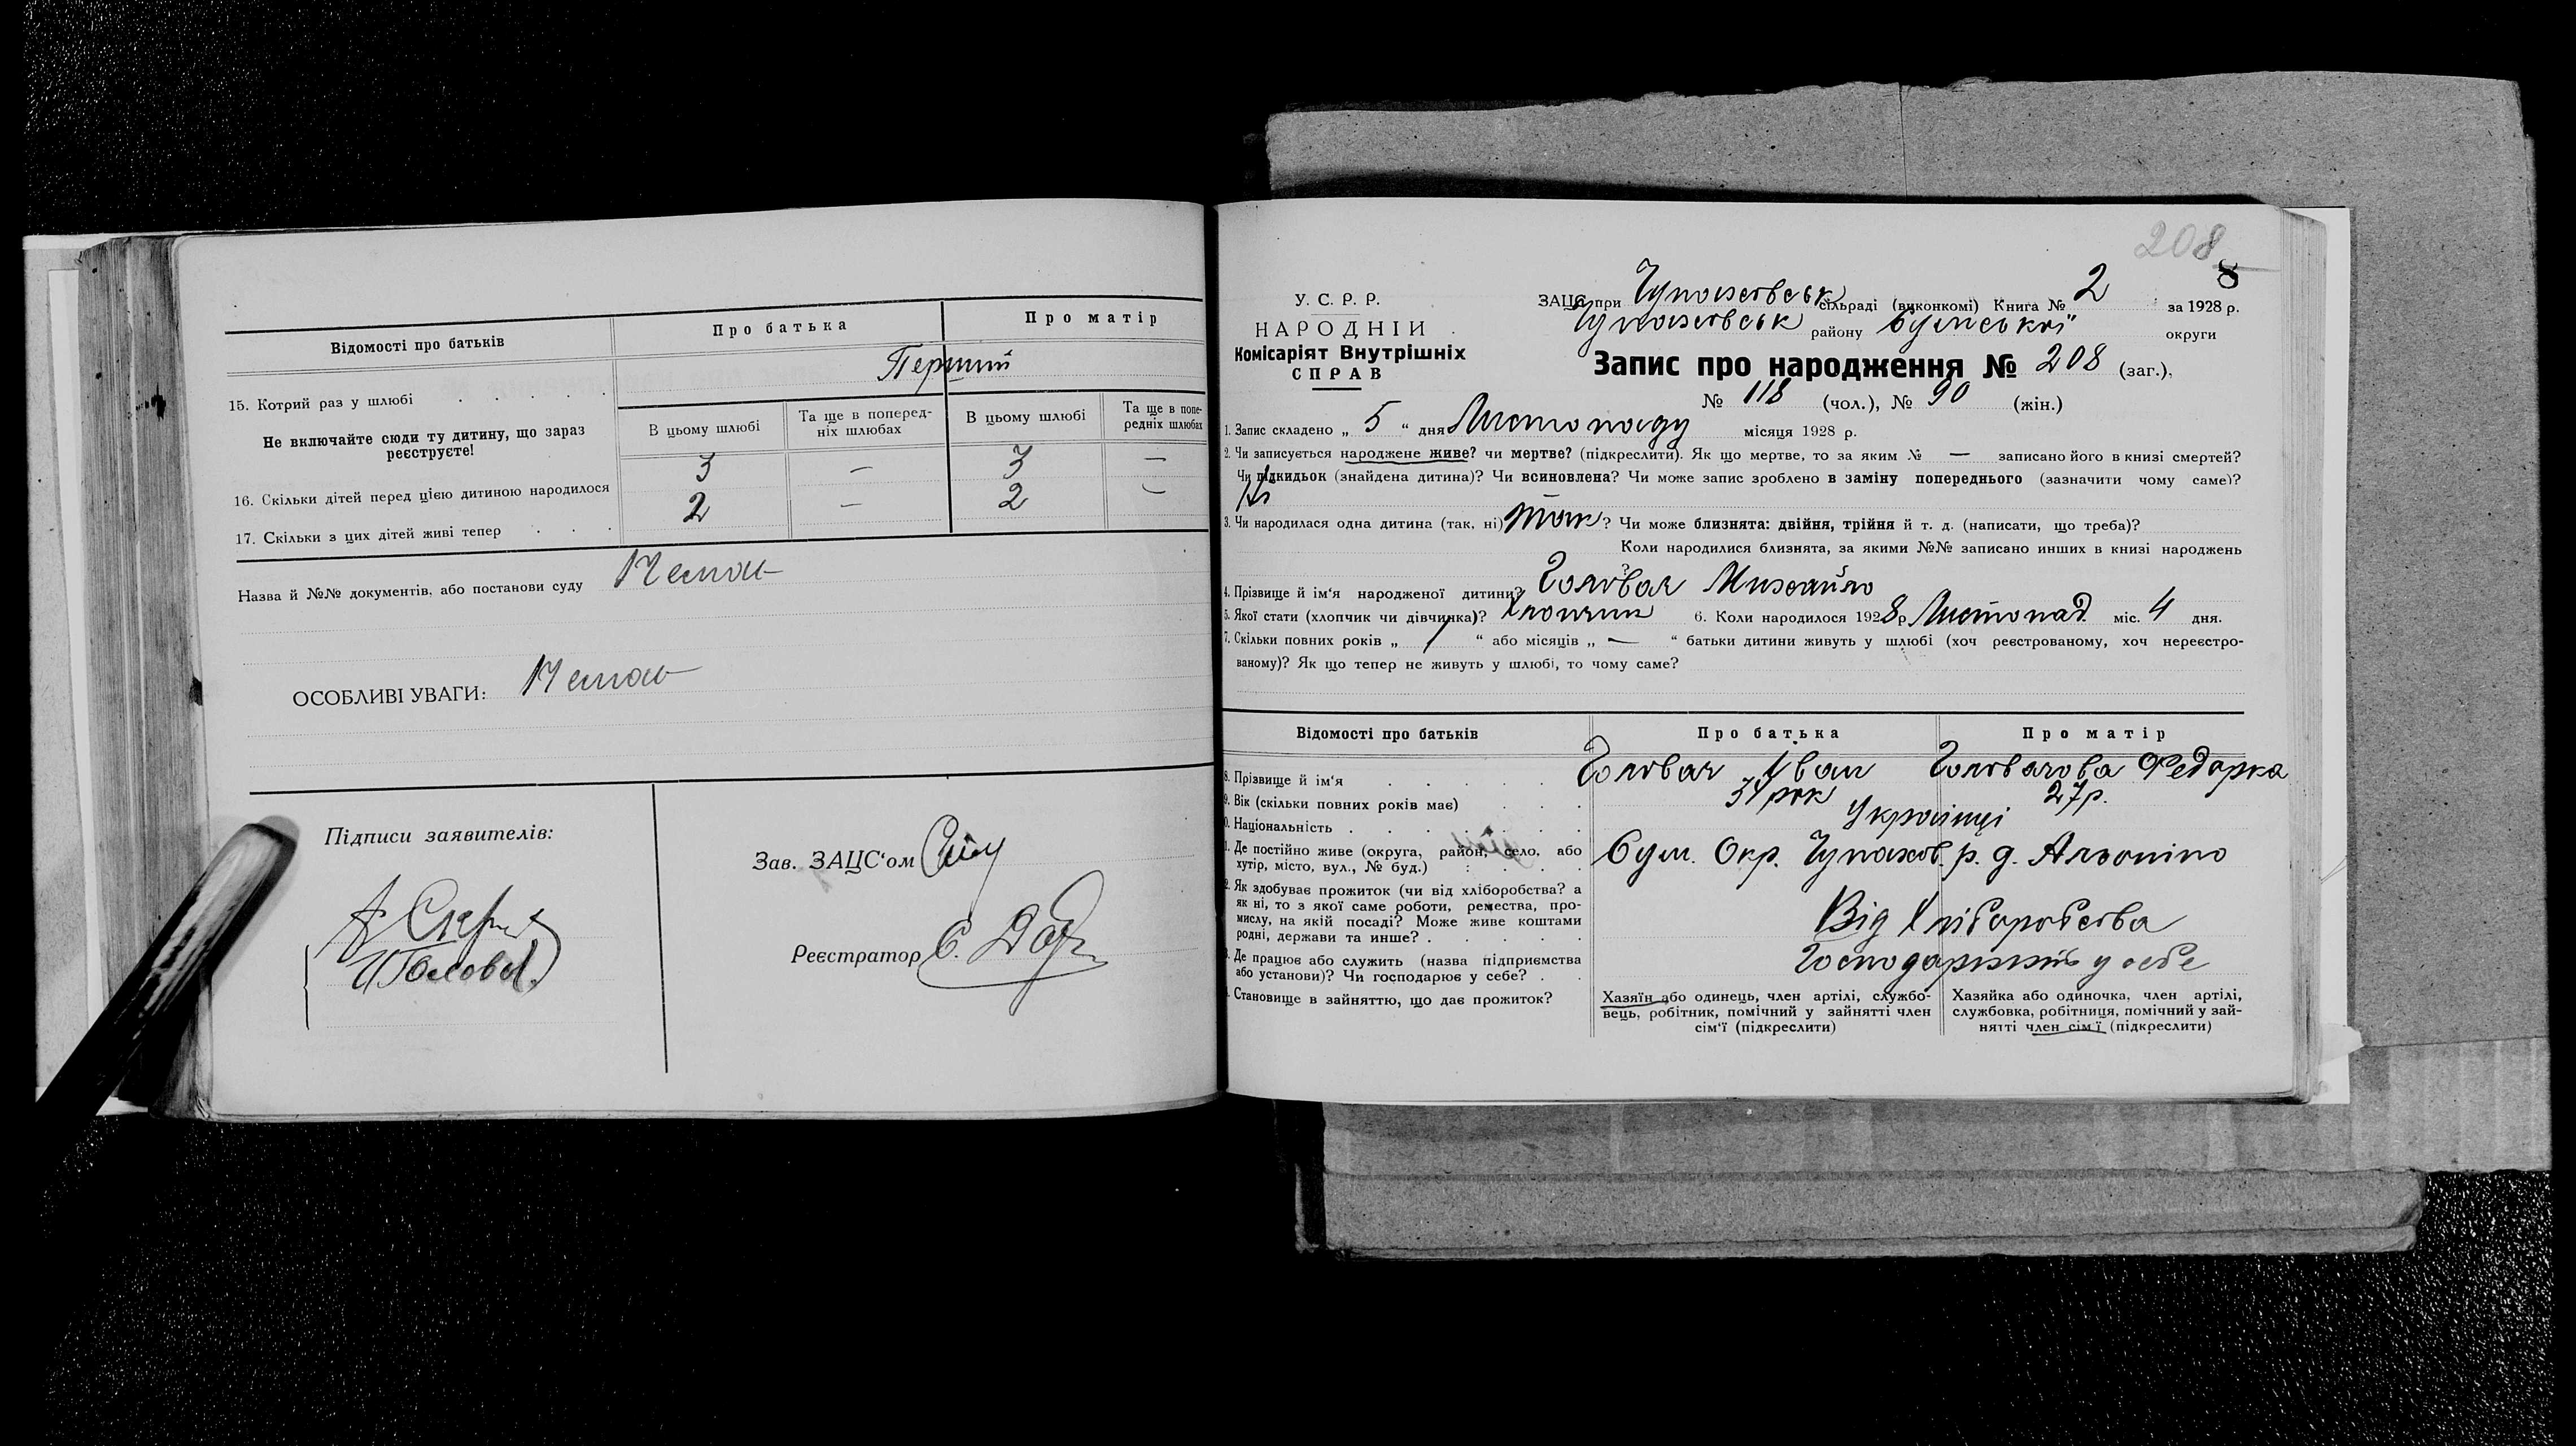 Відомості про батьків
Про батька
Про матір
15. Котрий раз у шлюбі . . . . .
Перший
Не включайте сюди ту дитину, що зараз
реєструєте!
В цьому шлюбі
Та ще в поперед-
ніх шлюбах
В цьому шлюбі
Та ще в попе-
редніх шлюбах
16. Скільки дітей перед цією дитиною народилося
3 — 3 —
17. Скільки з цих дітей живі тепер . . .
2 — 2 —
Назва й №№ документів, або постанови суду Немає
ОСОБЛИВІ УВАГИ: Немає
Підписи заявителів:
Зав. ЗАЦС'ом
Реєстратор
208
8
У. С. Р. Р.
НАРОДНІЙ
Комісаріят Внутрішніх
СПРАВ
ЗАЦС при Чупахівськ сільраді (виконкомі) Книга № 2 за 1928 р.
Чупахівськ району Сумської округи
Запис про народження № 208 (заг.),
№ 118 (чол.), № 90 (жін.)
1. Запис складено „ 5 “ дня Листопаду місяця 1928 р.
2. Чи записується народжене живе? чи мертве? (підкреслити). Як що мертве, то за яким № — записано його в книзі смертей?
Чи підкидьок (знайдена дитина)? Чи всиновлена? Чи може запис зроблено в заміну попереднього (зазначити чому саме)?
Ні
3. Чи народилася одна дитина (так, ні) Так? Чи може близнята: двійня, трійня й т. д. (написати, що треба)?
Коли народилися близнята, за якими №№ записано инших в книзі народжень
?
4. Прізвище й ім'я народженої дитини? Головач Михайло
5. Якої стати (хлопчик чи дівчинка)? Хлопчик 6. Коли народилося 1928 р. Листопад міс. 4 дня.
7. Скільки повних років „ “ або місяців „ — “ батьки дитини живуть у шлюбі (хоч реєстрованому, хоч нереєстро-
ваному)? Як що тепер не живуть у шлюбі, то чому саме?
Відомості про батьків
Про батька
Про матір
8. Прізвище й ім'я . . . . Головач Іван Головачова Федорка
9. Вік (скільки повних років має) . . . рок 27 р.
0. Національність . . . . . . . Українці
1. Де постійно живе (округа, район, село, або
хутір, місто, вул., № буд.) : . . .
Сум. Окр. Чупахов. р. д.
2. Як здобуває прожиток (чи від хліборобства? а
як ні, то з якої саме роботи, ремества, про-
мислу, на якій посаді? Може живе коштами
родні, держави та инше? . . . . .
Від Хліборобства
Де працює або служить (назва підприємства
або установи)? Чи господарює у себе? . .
у себе
Становище в зайняттю, що дає прожиток?
Хазяїн або одинець, член артілі, службо-
вець, робітник, помічний у зайнятті член
сім'ї (підкреслити)
Хазяйка або одиночка, член артілі,
службовка, робітниця, помічний у зай-
нятті член сім'ї (підкреслити)